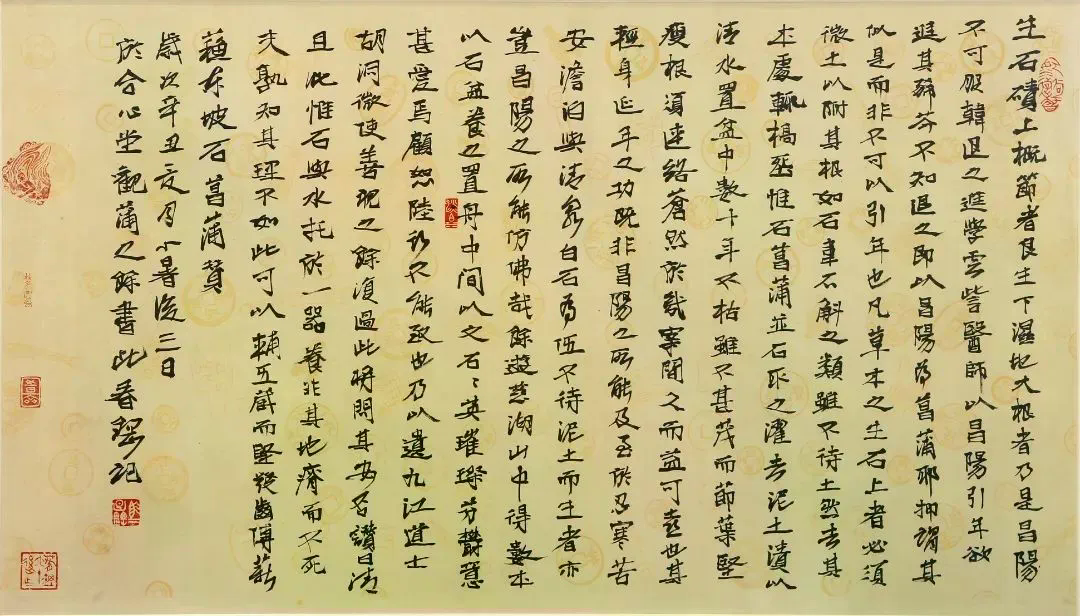 生石磧上概節者良生下濕地大根者乃是昌陽
不可服韓退之進學雲訾醫師以昌陽引年欲
進其豨苓不知退之即以昌陽為菖蒲耶抑謂其
似是而非不可以引年也凡草木之生石上者必須
微土以附其根如石韋石斛之類雖不待土然去其
本處輒槁死惟石菖蒲並石取之濯去泥土漬以
清水置盆中數十年不枯雖不甚茂而節葉堅
瘦根須連絡蒼然於幾案間久而益可喜也其
輕身延年之功既非昌陽之所能及至於忍寒苦
安澹泊與清泉白石為伍不待泥土而生者亦
豈昌陽之所能仿佛哉餘遊慈湖山中得數本
以石盆養之置舟中間以文石、英璀璨芬鬱意
甚愛焉顧恐陸行不能致也乃以遺九江道士
胡洞微使善視之餘復過此將問其安否讚曰清
且泚惟石與水托於一器養非其地瘠而不死
夫孰知其理不如此可以輔五藏而堅髮齒
蘇東坡石菖蒲贊
歲次辛丑夏月小暑後三日
於合心堂觀蒲之餘書此春記